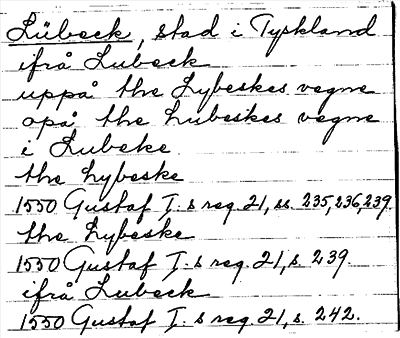 Lübeck, stad i Tyskland
ifrå Lubeck
uppå the Lybeskes vegne
opå the Lubeskes vegne
i Lubeke
the lybeske
1550 Gustaf I.s reg. 21, ss. 235, 236, 239.
the Lybeske
1550 Gustaf I.s reg. 21, s. 239.
ifrå Lubeck
1550 Gustaf I.s reg. 21, s. 242.